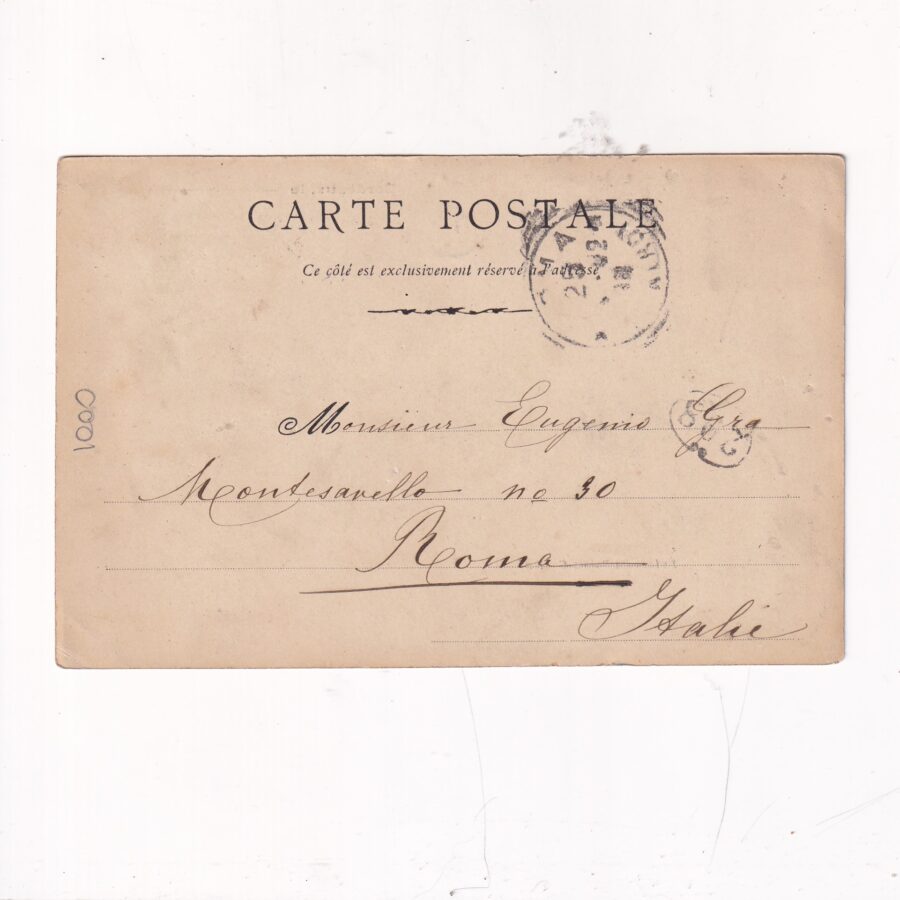 CARTE POSTALE
Ce côté est exclusivement réservé à l'adresse
Monsieur Eugenio Gra
Montesavello no 30
Roma
Italie
1000